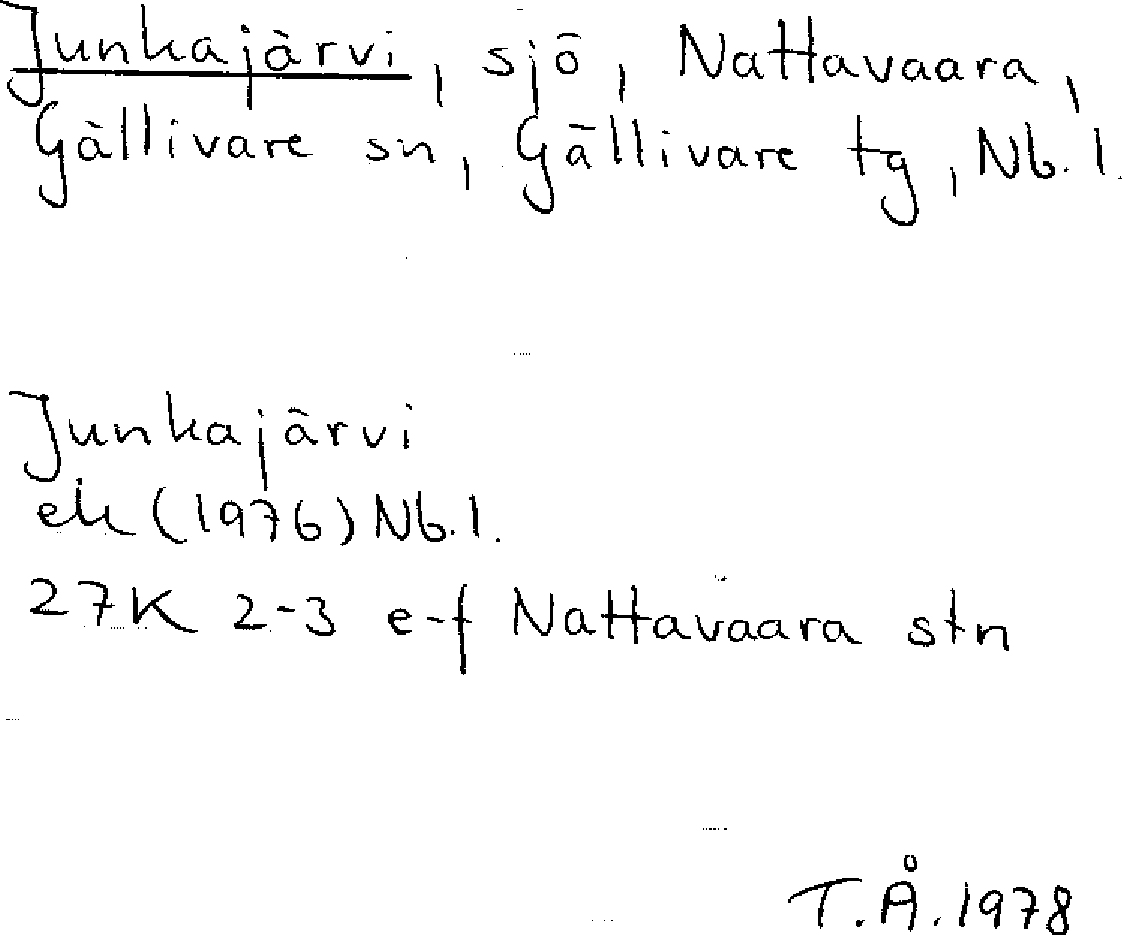 Junkajärvi, sjö, Nattavaara,
Gällivare sn, Gällivare tg, Nb. l.
Junkajärvi
ek (1976) Nb. l.
27K 2-3 e-f Nattavaara stn
T.Å. 1978